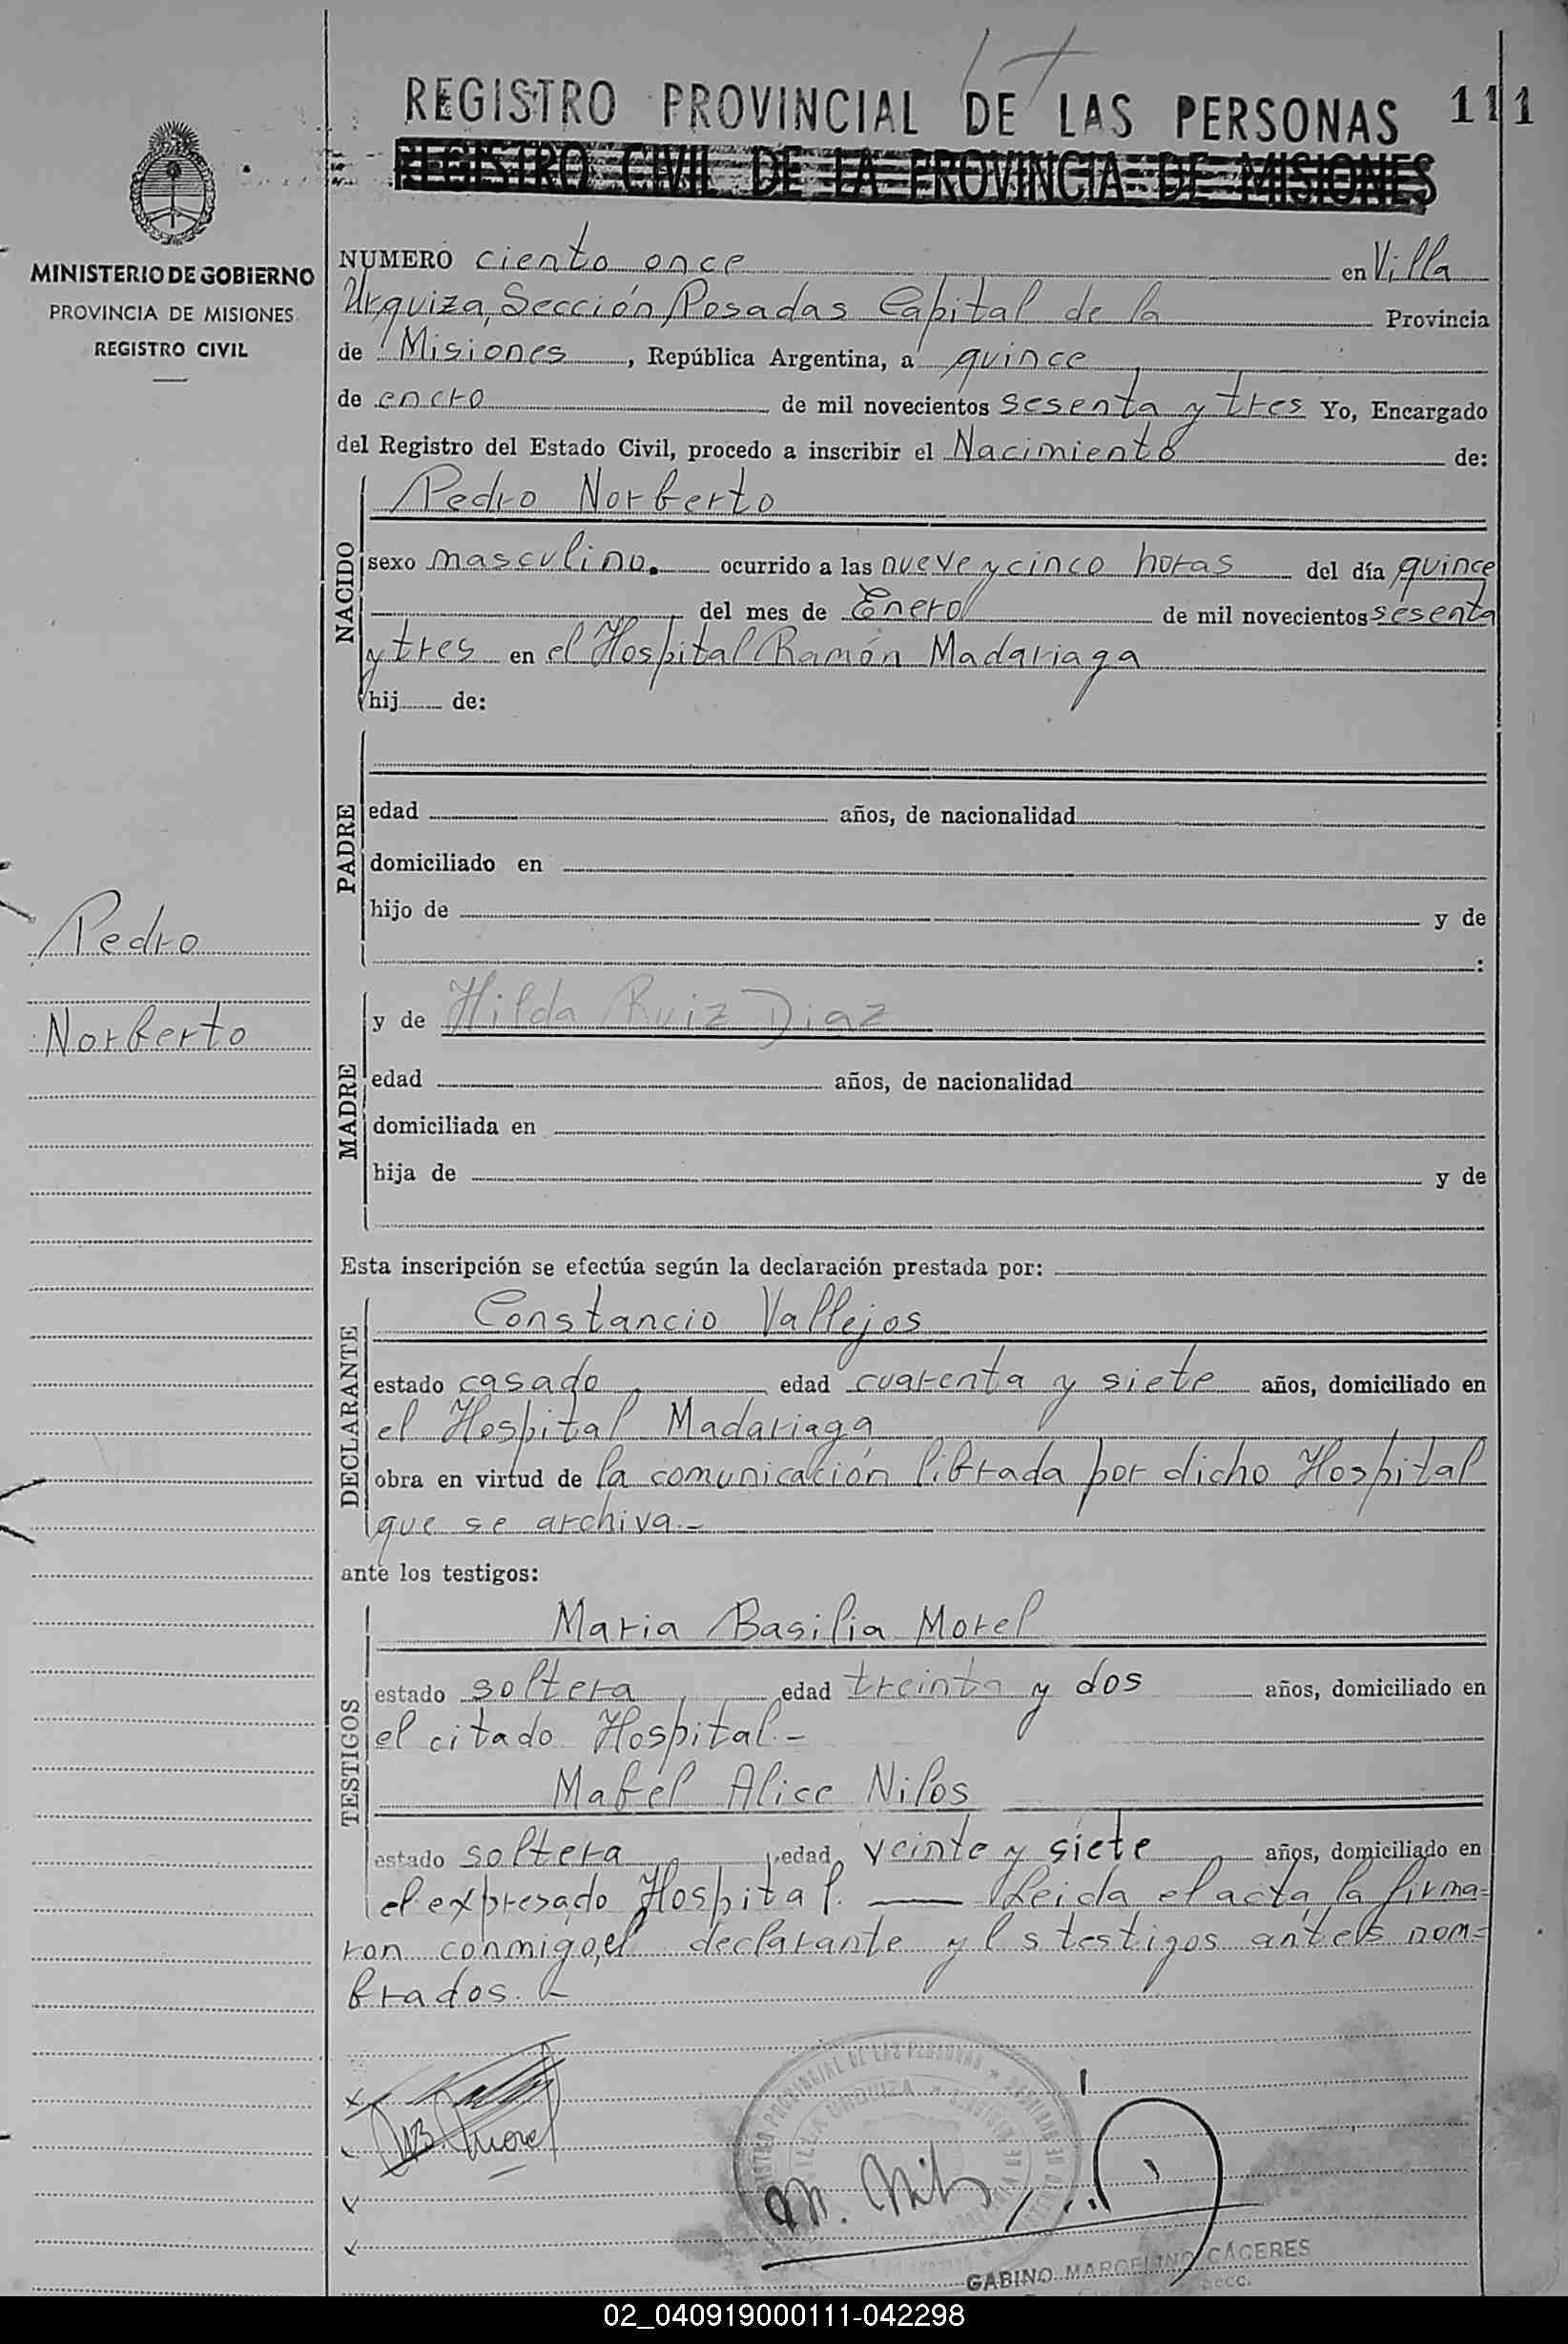 REGISTRO PROVINCIAL DE LAS PERSONAS 111
REGISTRO CIVIL DE LA PROVINCIA DE MISIONES
MINISTERIO DE GOBIERNO
PROVINCIA DE MISIONES
REGISTRO CIVIL
NUMERO ciento once en Villa
Urquiza, Sección Posadas Capital de la Provincia
de Misiones, República Argentina, a quince
de enero de mil novecientos sesenta y tres Yo, Encargado
del Registro del Estado Civil, procedo a inscribir el Nacimiento de:
NACIDO
Pedro Norberto
sexo masculino. ocurrido a las nueve y cinco horas del día quince
del mes de Enero de mil novecientos sesenta
y tres en el Hospital Ramón Madariaga
hij de:
PADRE
edad años, de nacionalidad
domiciliado en
hijo de y de
:
Pedro
Norberto
MADRE
y de Hilda Ruiz Diaz
edad años, de nacionalidad
domiciliada en
hija de y de
Esta inscripción se efectúa según la declaración prestada por:
DECLARANTE
Constancio Vallejos
estado casado edad cuarenta y siete años, domiciliado en
el Hospital Madariaga
obra en virtud de la comunicación librada por dicho Hospital
que se archiva.-
ante los testigos:
TESTIGOS
Maria Basilia Morel
estado soltera edad treinta y dos años, domiciliado en
el citado Hospital.-
Mabel Alice Nilos
estado soltera edad veinte y siete años, domiciliado en
el expresado Hospital. — Leida el acta, la firma=
ron conmigo, el declarante y l s testigos antels nom=
brados.-
M.B. Morel
VILLA URQUIZA
GABINO MARCELINO CÁCERES
02_040919000111-042298